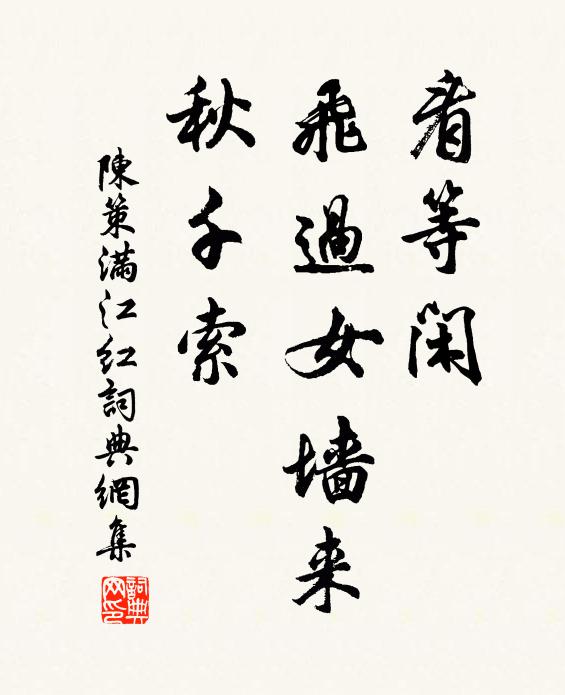 看等闲
飛過女墙来
秋千索
陳策满江红詞典網集
詞典网印